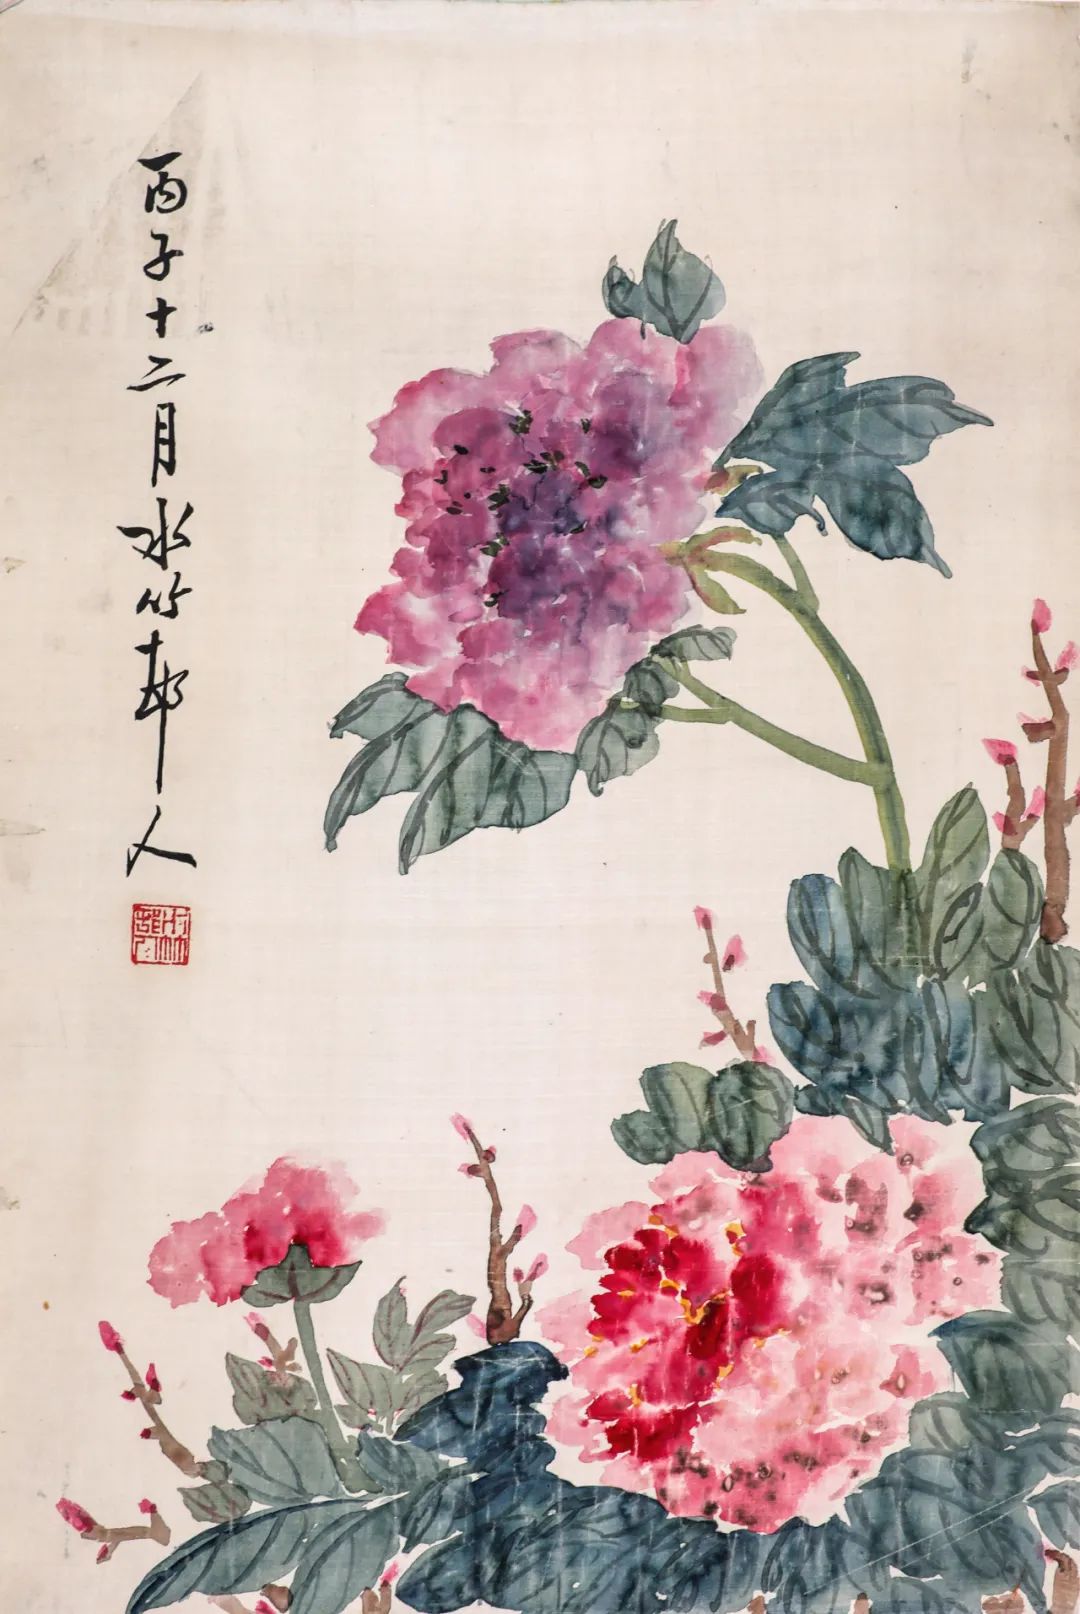 丙子十二月水竹邨人